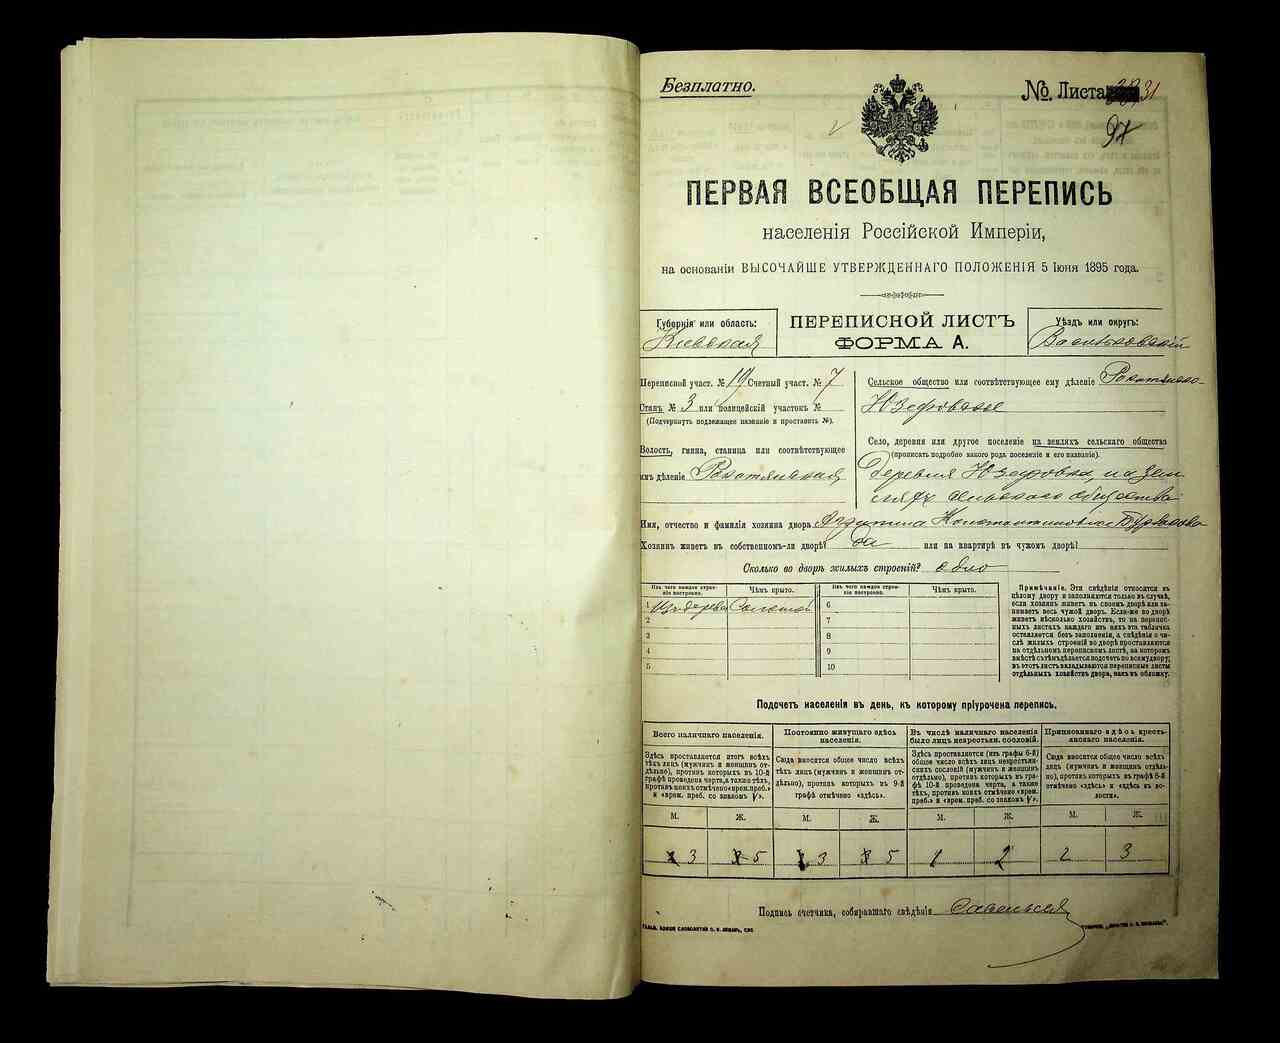 Безплатно.
№. Листа 31
97
ПЕРВАЯ ВСЕОБЩАЯ ПЕРЕПИСЬ
населенія Россійской Имперіи,
на основаніи ВЫСОЧАЙШЕ УТВЕРЖДЕННАГО ПОЛОЖЕНІЯ 5 Іюня 1895 года.
Губернія или область:
Кіевская
ПЕРЕПИСНОЙ ЛИСТЪ
ФОРМА А.
Уѣздъ или округъ:
Васильковскій
Переписной участ. № 19 Счетный участ. № 7
Станъ № 3 или полицейскій участокъ №
(Подчеркнуть подлежащее названіе и проставить №).
Волость, гмина, станица или соотвѣтствующее
имъ дѣленіе Рокитянская
Сельское общество или соотвѣтствующее ему дѣленіе
Село, деревня или другое поселеніе на земляхъ сельскаго общества
(прописать подробно какого рода поселеніе и его названіе).
Деревня Юзефовка, на зем
ляхъ сельскаго общества
Имя, отчество и фамилія хозяина двора
Хозяинъ живетъ въ собственномъ-ли дворѣ? да или на квартирѣ въ чужомъ дворѣ?
Сколько во дворѣ жилыхъ строеній? одно
Изъ чего каждое строеніе построено.
Чѣмъ крыто.
Изъ чего каждое строеніе построено.
Чѣмъ крыто.
1 Изъ дерева Соломой 6
2 7
3 8
4 9
5 10
Примѣчаніе. Эти свѣдѣнія относятся къ
цѣлому двору и заполняются только въ случаѣ,
если хозяинъ живетъ въ своемъ дворѣ или занимаетъ весь чужой дворъ. Если-же во дворѣ
живетъ нѣсколько хозяйствъ, то на переписныхъ листахъ каждаго изъ нихъ эта табличка
оставляется безъ заполненія, а свѣдѣнія о числѣ жилыхъ строеній во дворѣ проставляются
на отдѣльномъ переписномъ листѣ, на которомъ
вмѣстѣ съ тѣмъ дѣлается подсчетъ по всему двору;
въ этотъ листъ вкладываются переписные листы
отдѣльныхъ хозяйствъ двора, какъ въ обложку.
Подсчетъ населенія въ день, къ которому пріурочена перепись.
Всего наличнаго населенія.
Здѣсь проставляется итогъ всѣхъ
тѣхъ лицъ (мужчинъ и женщинъ отдѣльно), противъ которыхъ въ 10-й
графѣ проведена черта, а также тѣхъ,
противъ коихъ отмѣчено «врем. преб.»
и «врем. преб. со знакомъ V».
Постоянно живущаго здѣсь
населенія.
Сюда вносится общее число всѣхъ
тѣхъ лицъ (мужчинъ и женщинъ отдѣльно), противъ которыхъ въ 9-й
графѣ отмѣчено «здѣсь».
Въ числѣ наличнаго населенія
было лицъ некрестьян. сословій.
Здѣсь проставляется (изъ графы 6-й)
общее число всѣхъ лицъ некрестьянскихъ сословій (мужчинъ и женщинъ
отдѣльно), противъ которыхъ въ графѣ 10-й проведена черта, а также
тѣхъ, противъ коихъ отмѣчено «врем.
преб.» и «врем. преб. со знакомъ V».
Приписаннаго здѣсь крестьянскаго населенія.
Сюда вносится общее число всѣхъ
лицъ (мужчинъ и женщинъ отдѣльно), противъ которыхъ въ графѣ 8-й
отмѣчено «здѣсь» и «здѣсь въ волости».
М. Ж. М. Ж. М. Ж. М. Ж.
3 5 3 5 1 2 2 3
Подпись счетчика, собиравшаго свѣдѣнія